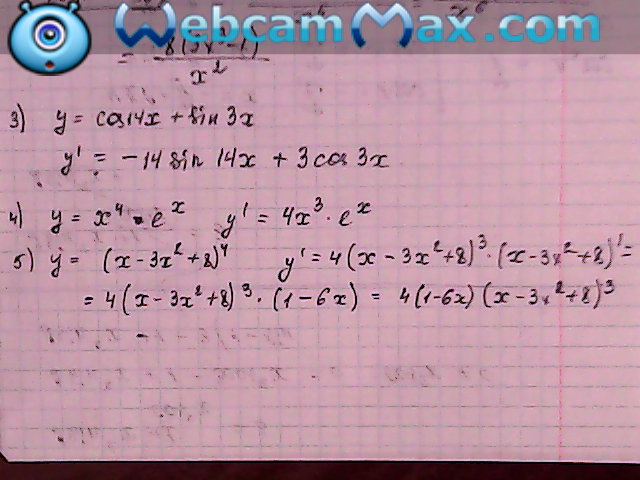 WebcamMax.com
x²
3) y = cos14x + sin 3x
y' = -14 sin 14x + 3 cos 3x
4) y = x⁴ · eˣ y' = 4x³ · eˣ
5) y = (x - 3x² + 8)⁴ y' = 4(x - 3x² + 8)³ · (x - 3x² + 8)' =
= 4(x - 3x² + 8)³ · (1 - 6x) = 4(1-6x)(x - 3x² + 8)³